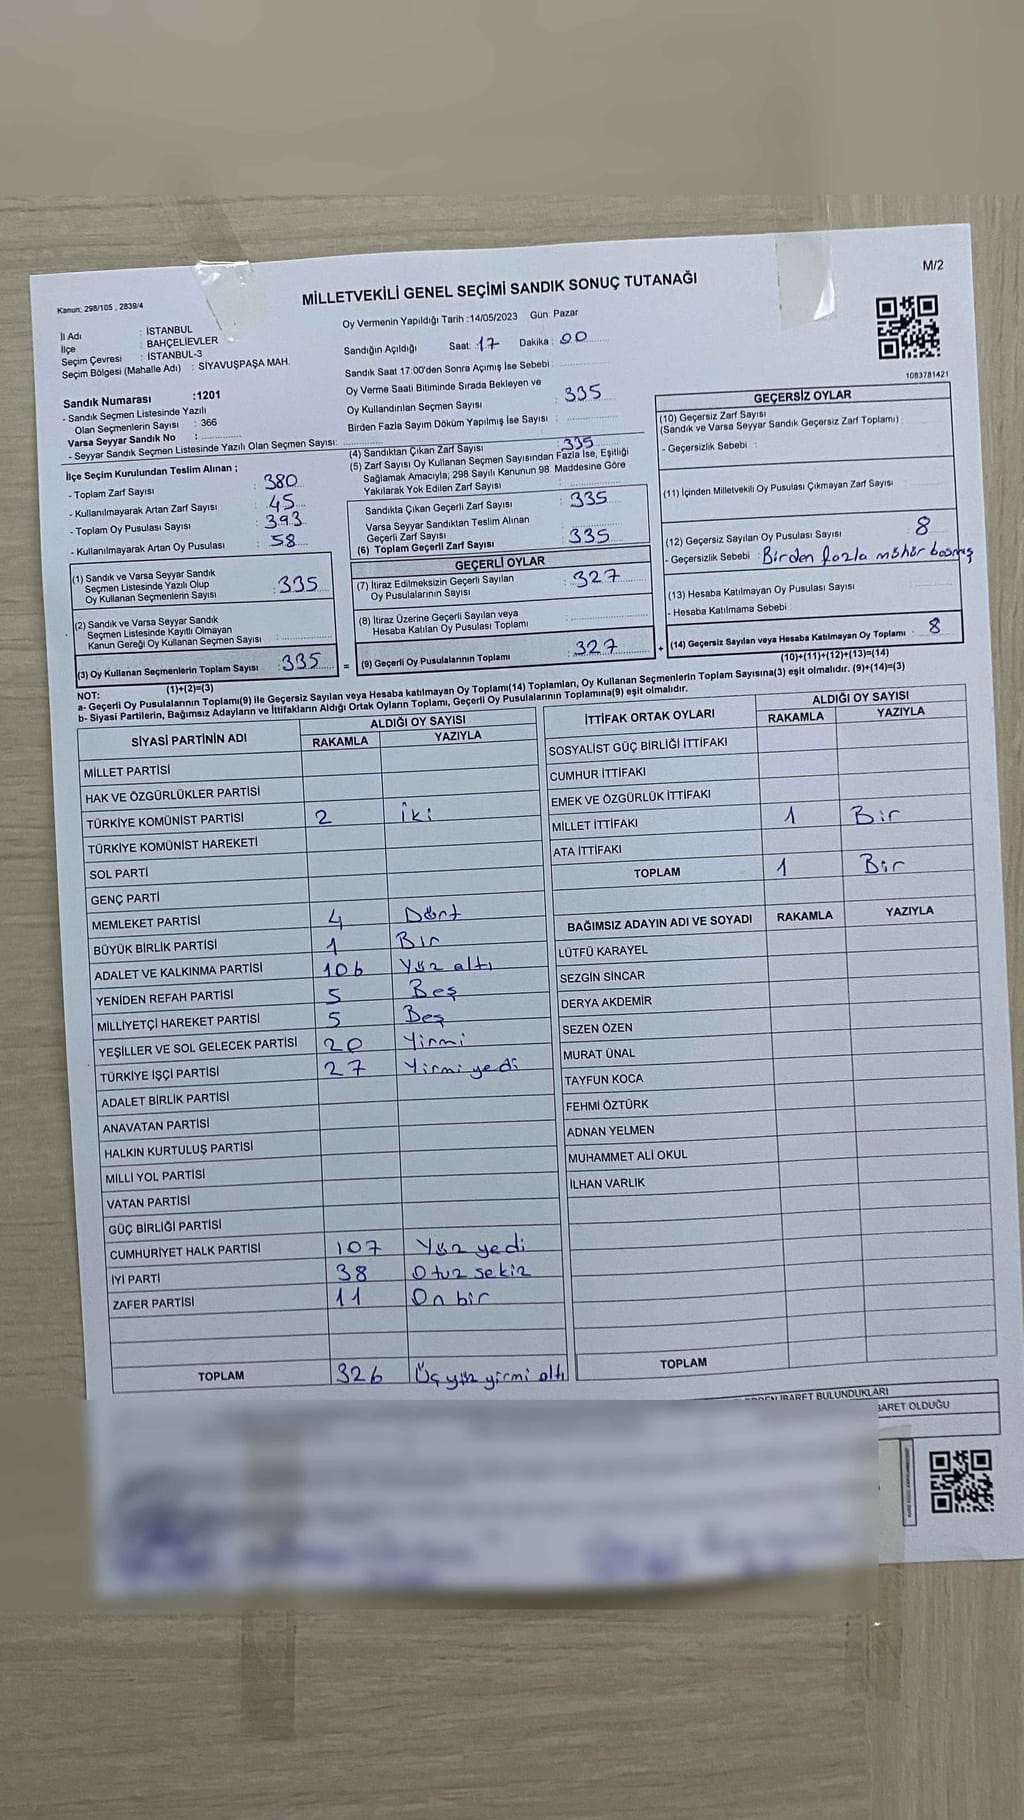 M/2
Kanun: 298/105 , 2839/4
MİLLETVEKİLİ GENEL SEÇİMİ SANDIK SONUÇ TUTANAĞI
İl Adı : İSTANBUL
İlçe : BAHÇELİEVLER
Seçim Çevresi : İSTANBUL-3
Seçim Bölgesi (Mahalle Adı) : SİYAVUŞPAŞA MAH.
Oy Vermenin Yapıldığı Tarih :14/05/2023 Gün: Pazar
Sandığın Açıldığı Saat: 17 Dakika: 00
Sandık Saat 17.00'den Sonra Açımış İse Sebebi :
Oy Verme Saati Bitiminde Sırada Bekleyen ve
Oy Kullandırılan Seçmen Sayısı : 335
Birden Fazla Sayım Döküm Yapılmış İse Sayısı :
1083781421
Sandık Numarası :1201
- Sandık Seçmen Listesinde Yazılı
Olan Seçmenlerin Sayısı : 366
Varsa Seyyar Sandık No :
- Seyyar Sandık Seçmen Listesinde Yazılı Olan Seçmen Sayısı:
İlçe Seçim Kurulundan Teslim Alınan ;
- Toplam Zarf Sayısı : 380
- Kullanılmayarak Artan Zarf Sayısı : 45
- Toplam Oy Pusulası Sayısı : 393
- Kullanılmayarak Artan Oy Pusulası : 58
(1) Sandık ve Varsa Seyyar Sandık
Seçmen Listesinde Yazılı Olup
Oy Kullanan Seçmenlerin Sayısı : 335
(2) Sandık ve Varsa Seyyar Sandık
Seçmen Listesinde Kayıtlı Olmayan
Kanun Gereği Oy Kullanan Seçmen Sayısı :
(3) Oy Kullanan Seçmenlerin Toplam Sayısı : 335
(1)+(2)=(3)
(4) Sandıktan Çıkan Zarf Sayısı : 335
(5) Zarf Sayısı Oy Kullanan Seçmen Sayısından Fazla İse, Eşitliği
Sağlamak Amacıyla, 298 Sayılı Kanunun 98. Maddesine Göre
Yakılarak Yok Edilen Zarf Sayısı :
Sandıkta Çıkan Geçerli Zarf Sayısı : 335
Varsa Seyyar Sandıktan Teslim Alınan
Geçerli Zarf Sayısı :
(6) Toplam Geçerli Zarf Sayısı : 335
GEÇERLİ OYLAR
(7) İtiraz Edilmeksizin Geçerli Sayılan
Oy Pusulalarının Sayısı : 327
(8) İtiraz Üzerine Geçerli Sayılan veya
Hesaba Katılan Oy Pusulası Toplamı :
= (9) Geçerli Oy Pusulalarının Toplamı : 327
GEÇERSİZ OYLAR
(10) Geçersiz Zarf Sayısı
(Sandık ve Varsa Seyyar Sandık Geçersiz Zarf Toplamı) :
- Geçersizlik Sebebi :
(11) İçinden Milletvekili Oy Pusulası Çıkmayan Zarf Sayısı :
(12) Geçersiz Sayılan Oy Pusulası Sayısı : 8
- Geçersizlik Sebebi : Birden fazla mühür basmış
(13) Hesaba Katılmayan Oy Pusulası Sayısı :
- Hesaba Katılmama Sebebi :
+ (14) Geçersiz Sayılan veya Hesaba Katılmayan Oy Toplamı : 8
(10)+(11)+(12)+(13)=(14)
NOT:
a- Geçerli Oy Pusulalarının Toplamı(9) ile Geçersiz Sayılan veya Hesaba katılmayan Oy Toplamı(14) Toplamları, Oy Kullanan Seçmenlerin Toplam Sayısına(3) eşit olmalıdır. (9)+(14)=(3)
b- Siyasi Partilerin, Bağımsız Adayların ve İttifakların Aldığı Ortak Oyların Toplamı, Geçerli Oy Pusulalarının Toplamına(9) eşit olmalıdır.
SİYASİ PARTİNİN ADI ALDIĞI OY SAYISI
RAKAMLA YAZIYLA
MİLLET PARTİSİ
HAK VE ÖZGÜRLÜKLER PARTİSİ
TÜRKİYE KOMÜNİST PARTİSİ 2 İki
TÜRKİYE KOMÜNİST HAREKETİ
SOL PARTİ
GENÇ PARTİ
MEMLEKET PARTİSİ 4 Dört
BÜYÜK BİRLİK PARTİSİ 1 Bir
ADALET VE KALKINMA PARTİSİ 106 Yüz altı
YENİDEN REFAH PARTİSİ 5 Beş
MİLLİYETÇİ HAREKET PARTİSİ 5 Beş
YEŞİLLER VE SOL GELECEK PARTİSİ 20 Yirmi
TÜRKİYE İŞÇİ PARTİSİ 27 Yirmi yedi
ADALET BİRLİK PARTİSİ
ANAVATAN PARTİSİ
HALKIN KURTULUŞ PARTİSİ
MİLLİ YOL PARTİSİ
VATAN PARTİSİ
GÜÇ BİRLİĞİ PARTİSİ
CUMHURİYET HALK PARTİSİ 107 Yüz yedi
İYİ PARTİ 38 Otuz sekiz
ZAFER PARTİSİ 11 On bir
TOPLAM 326 Üç yüz yirmi altı
İTTİFAK ORTAK OYLARI ALDIĞI OY SAYISI
RAKAMLA YAZIYLA
SOSYALİST GÜÇ BİRLİĞİ İTTİFAKI
CUMHUR İTTİFAKI
EMEK VE ÖZGÜRLÜK İTTİFAKI
MİLLET İTTİFAKI 1 Bir
ATA İTTİFAKI
TOPLAM 1 Bir
BAĞIMSIZ ADAYIN ADI VE SOYADI RAKAMLA YAZIYLA
LÜTFÜ KARAYEL
SEZGİN SİNCAR
DERYA AKDEMİR
SEZEN ÖZEN
MURAT ÜNAL
TAYFUN KOCA
FEHMİ ÖZTÜRK
ADNAN YELMEN
MUHAMMET ALİ OKUL
İLHAN VARLIK
TOPLAM
İBARET BULUNDUKLARI
İBARET OLDUĞU